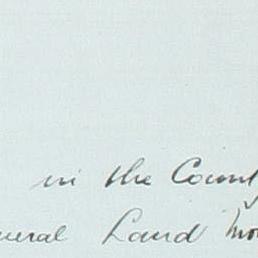 in the Count
neral Land